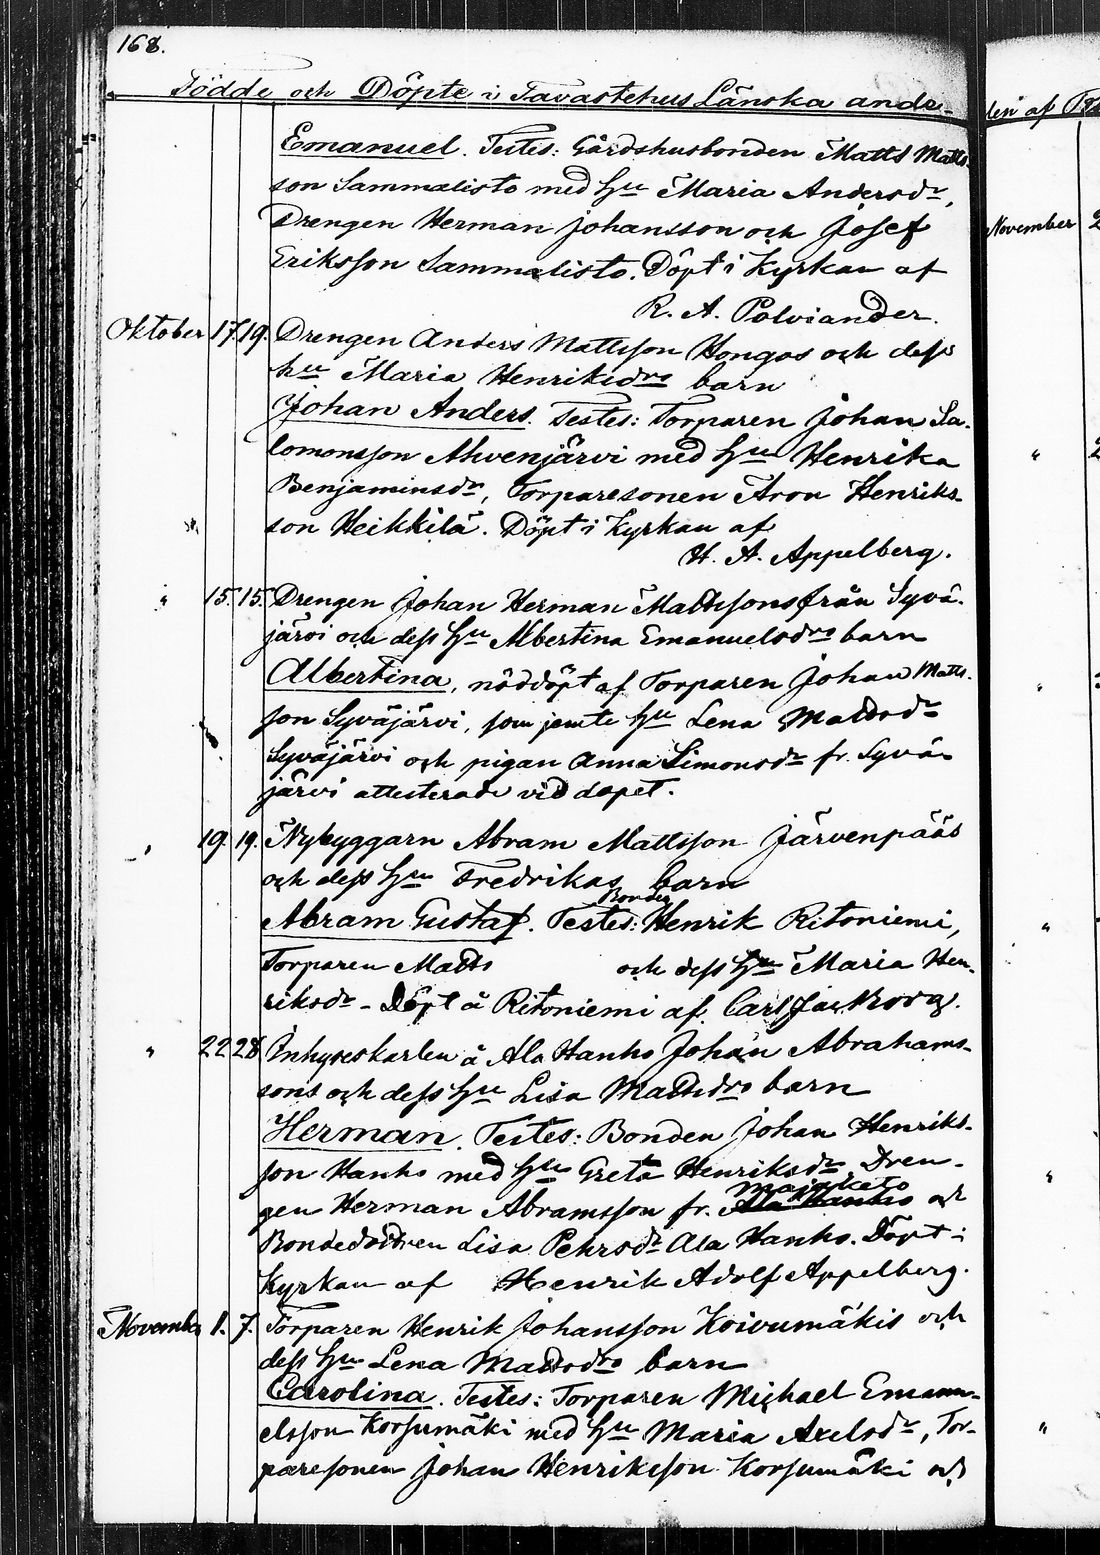 168.
Födde och Döpte i Tavastehus Länska andre-
Emanuel. Testes: Gårdshusbonden Matts Matts
son Sammalisto med hu Maria Andersdr,
Drengen Herman Johansson och Josef
Eriksson Sammalisto. Döpt i Kyrkan af
R. A. Polviander.
Oktober 17. 19. Drengen Anders Mattsson Hongos och dess
hu Maria Henriksdrs barn
Johan Anders. Testes: Torparen Johan Sa-
lomonsson Ahvenjärvi med hu Henrika
Benjaminsdr, Torparesonen Aron Henriks-
son Heikkilä. Döpt i Kyrkan af
H. A. Appelberg.
" 15. 15. Drengen Johan Herman Mattssons från Syvä-
järvi och dess hu Albertina Emanuelsdrs barn
Albertina, nöddöpt af Torparen Johan Matts-
son Syväjärvi, som jemte hu Lena Mattsdr
Syväjärvi och pigan Anna Simonsdr fr. Syvä-
järvi attesterade vid dopet.
" 19. 19. Nybyggarn Abram Mattsson Järvenpääs
och dess hu Fredrikas barn
Bonden
Abram Gustaf. Testes: Henrik Ritoniemi,
Torparen Matts och dess hu Maria Hen-
riksdr - Döpt å Ritoniemi af Carl
" 22 28 Inhyseskarlen å Ala Hanho Johan Abrahams-
sons och dess hu Lisa Mattsdrs barn
Herman. Testes: Bonden Johan Henriks-
son Hanho med hu Greta Henriksdr, Dren-
gen Herman Abramsson fr. Ala Hanho och
Bondedottren Lisa Pehrsdr Ala Hanho. Döpt i
Kyrkan af Henrik Adolf Appelberg.
November 1. 7. Torparen Henrik Johansson Koivumäkis och
dess hu Lena Mattsdrs barn
Carolina. Testes: Torparen Michael Emanu-
elsson Korsumäki med hu Maria Axelsdr, Tor-
paresonen Johan Henriksson Korsumäki och
den af
November 2
" 2
"
"
"
"